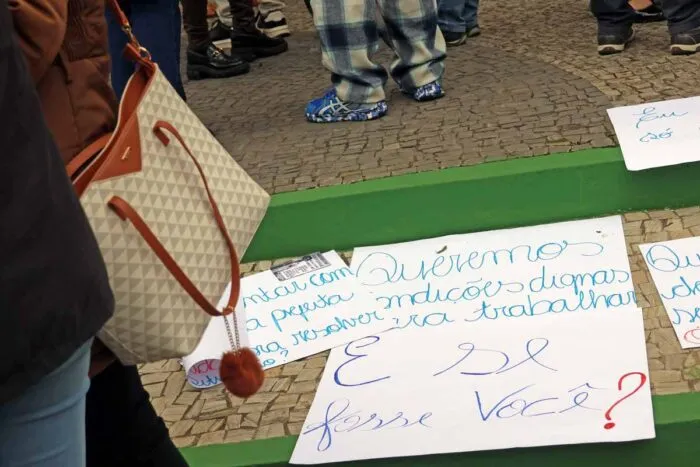 Eu
só
ntar com
a prefeita
ra resolver
Queremos
ndições dignas
ra trabalhar
E se
fosse Você?
Qu
de
se